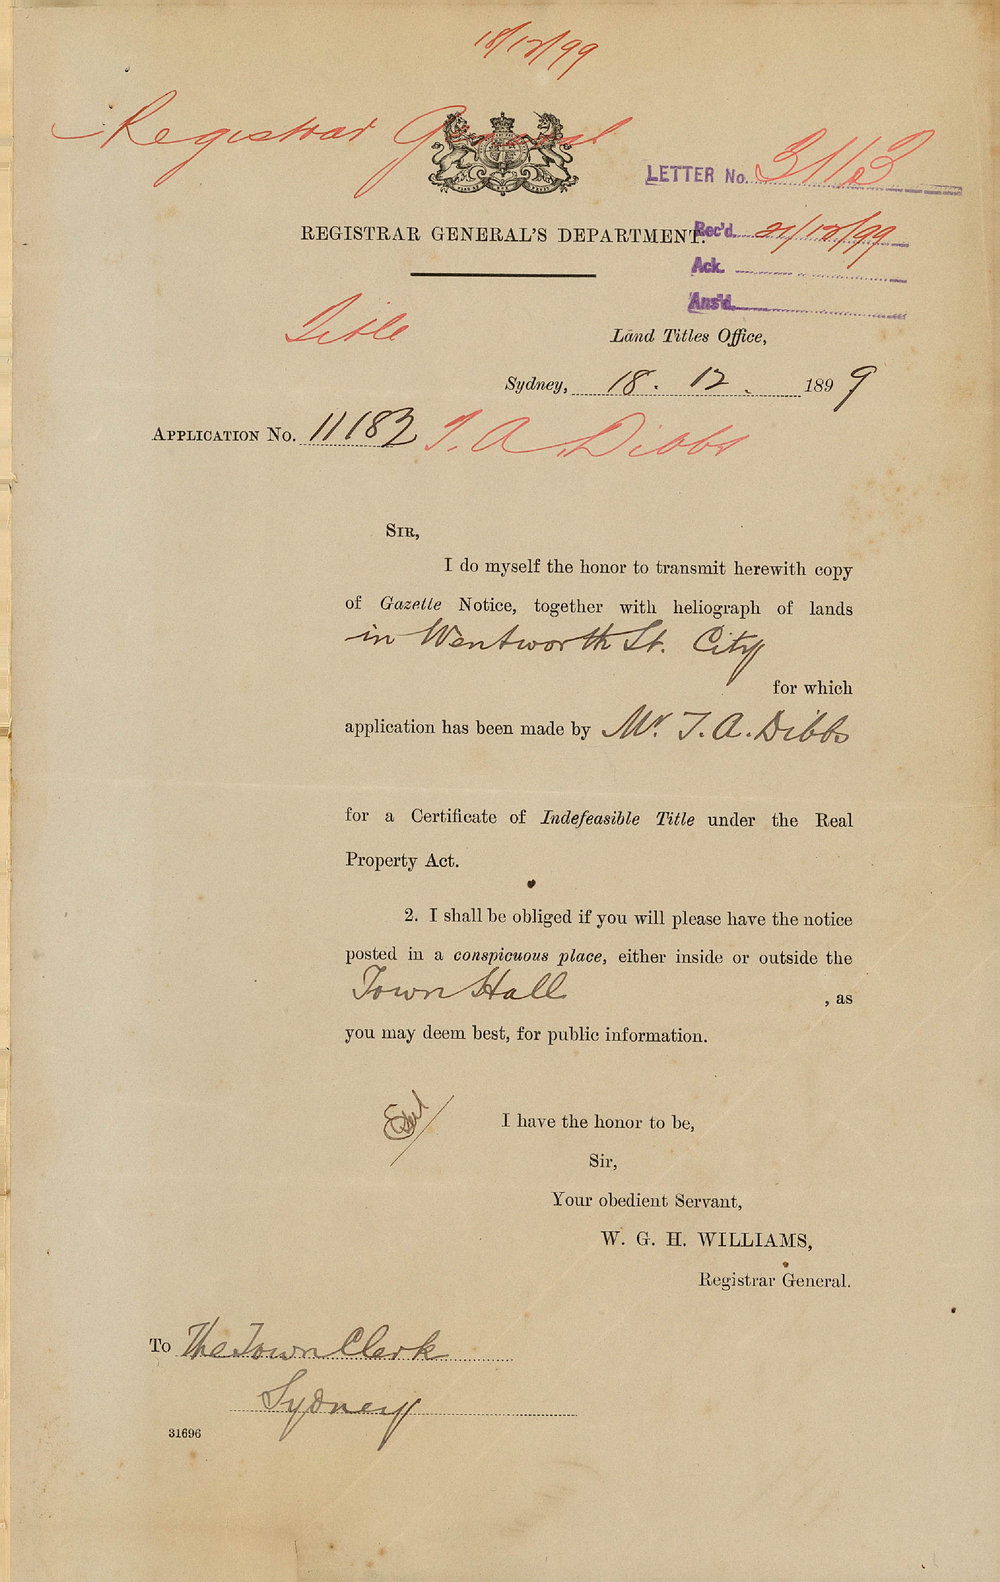 18/12/99
Registrar General
LETTER No. 3113
REGISTRAR GENERAL'S DEPARTMENT.
Rec'd. 21/12/99
Ack.
Ans'd.
Title
Land Titles Office,
Sydney, 18. 12. 1899
APPLICATION No. 11183 T. A. Dibbs
SIR,
I do myself the honor to transmit herewith copy
of Gazette Notice, together with heliograph of lands
in Wentworth St. City
for which
application has been made by Mr. T. A. Dibbs
for a Certificate of Indefeasible Title under the Real
Property Act.
2. I shall be obliged if you will please have the notice
posted in a conspicuous place, either inside or outside the
Town Hall , as
you may deem best, for public information.
I have the honor to be,
Sir,
Your obedient Servant,
W. G. H. WILLIAMS,
Registrar General.
To The Town Clerk
Sydney
31696